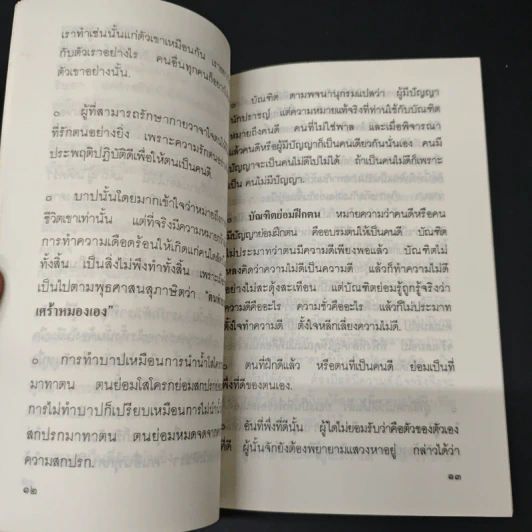 เราทำเช่นนั้นแก่ตัวเขาเหมือนกัน
กับตัวเราอย่างไร คนอื่นทุกคนก็
ตัวเขาอย่างนั้น.
๐ ผู้ที่สามารถรักษากายวาจาใจ
ที่รักตนอย่างยิ่ง เพราะความรักตน
ประพฤติปฏิบัติดีเพื่อให้ตนเป็นคนดี.
๐ บาปนั้นโดยมากเข้าใจว่าหมายถึง
ชีวิตเขาเท่านั้น แต่ที่จริงมีความหมาย
การทำความเดือดร้อนให้เกิดแก่คน
ทั้งสิ้น เป็นสิ่งไม่พึงทำทั้งสิ้น เพราะ
เป็นไปตามพุทธศาสนสุภาษิตว่า
เศร้าหมองเอง"
๐ การทำบาปเหมือนการนำน้ำโสโครก
มาทาตน ตนย่อมโสโครกย่อมสกปรก
การไม่ทำบาปก็เปรียบเหมือนการไม่นำ
สกปรกมาทาตน ตนย่อมหมดจด
ความสกปรก.
๑๒
๐ บัณฑิต ตามพจนานุกรมแปลว่า ผู้มีปัญญา
นักปราชญ์ แต่ความหมายแท้จริงที่ท่านใช้กับบัณฑิต
หมายถึงคนดี คนที่ไม่ใช่พาล และเมื่อพิจารณา
แล้วคนดีหรือผู้มีปัญญาก็เป็นคนเดียวกันนั่นเอง คนมี
ปัญญาจะเป็นคนไม่ดีไปไม่ได้ ถ้าเป็นคนไม่ดีก็เพราะ
เป็น คนไม่มีปัญญา.
๐ บัณฑิตย่อมฝึกตน หมายความว่าคนดีหรือคน
มีปัญญาย่อมฝึกตน คืออบรมตนให้เป็นคนดี บัณฑิต
ไม่ประมาทว่าตนมีความดีเพียงพอแล้ว บัณฑิตไม่
หลงคิดว่าความไม่ดีเป็นความดี แล้วก็ทำความไม่ดี
อย่างไม่สะดุ้งสะเทือน แต่บัณฑิตย่อมรู้ถูกรู้จริงว่า
ความดีคืออะไร ความชั่วคืออะไร แล้วก็ไม่ประมาท
ตั้งใจทำความดี ตั้งใจหลีกเลี่ยงความไม่ดี.
๐ ตนที่ฝึกดีแล้ว หรือตนที่เป็นคนดี ย่อมเป็นที่
พึ่งที่ดีของตนเอง.
๐ อันที่พึ่งที่ดีนั้น ผู้ใดไม่ยอมรับว่าคือตัวของตัวเอง
ที่ดี ผู้นั้นจักยังต้องพยายามแสวงหาอยู่ กล่าวได้ว่า
๑๓